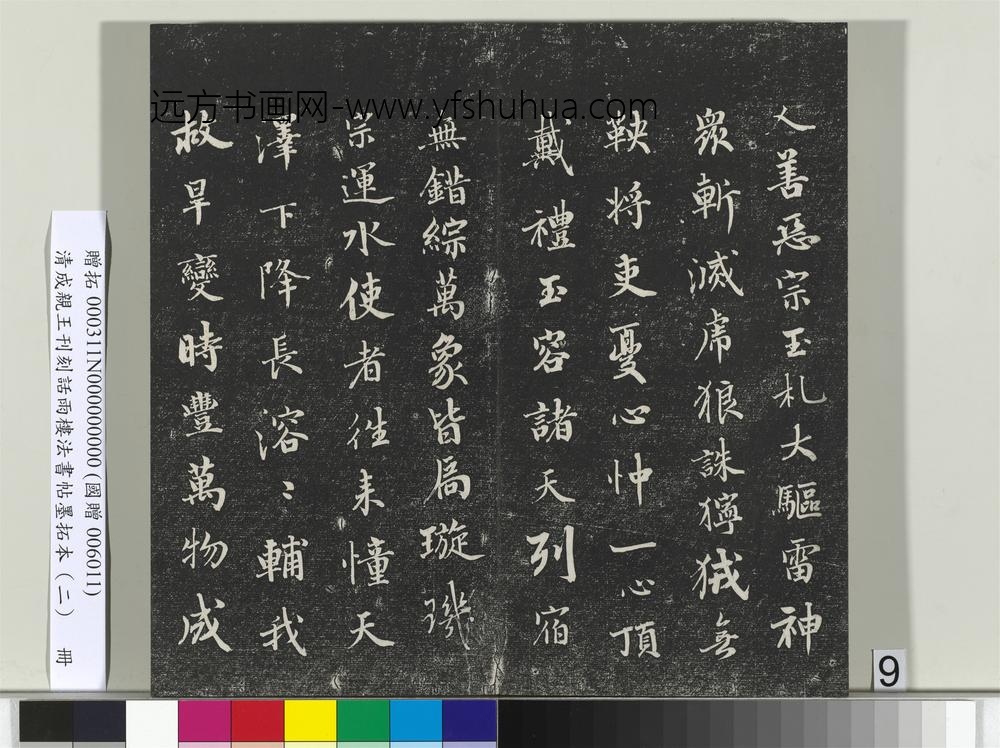 人善惡宗玉札大驅雷神
眾斬滅虎狼誅獰狨無
鞅將吏憂心忡一心頂
戴禮玉容諸天列宿
無錯綜萬象皆扃璇璣
宗運水使者往來憧天
澤下降長溶〻輔我
救旱變時豐萬物咸
远方书画网-www.yfshuhua.com
贈拓 000311N000000000 (國贈 006011)
清成親王刊刻話雨樓法書帖墨拓本（二） 冊
9